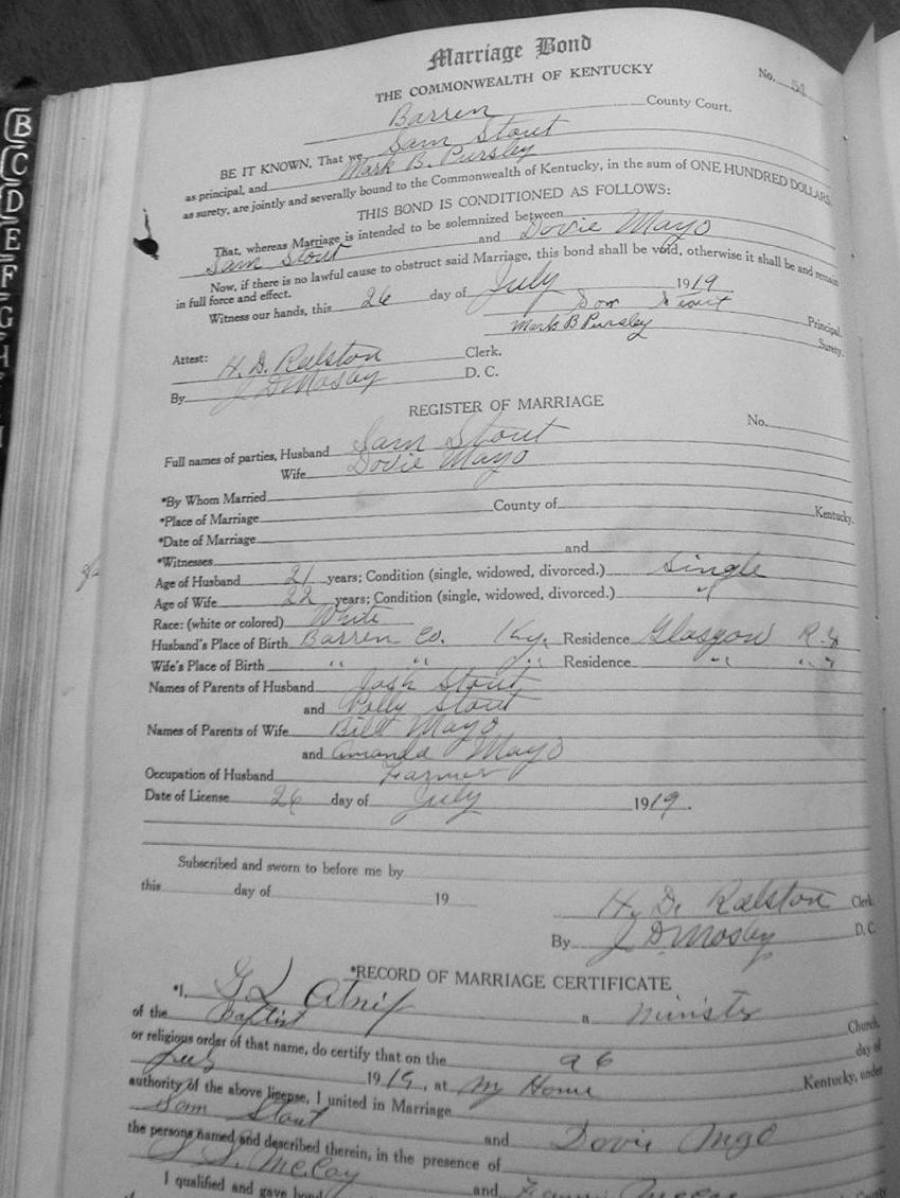 B
C
D
E
F
G
H
Marriage Bond
No. 54
THE COMMONWEALTH OF KENTUCKY
Barren County Court.
BE IT KNOWN, That we, Sam Stout
as principal, and Mark B. Pursley
as surety, are jointly and severally bound to the Commonwealth of Kentucky, in the sum of ONE HUNDRED DOLLARS.
THIS BOND IS CONDITIONED AS FOLLOWS:
That, whereas Marriage is intended to be solemnized between
Sam Stout and Dovie Mayo
Now, if there is no lawful cause to obstruct said Marriage, this bond shall be void, otherwise it shall be and remain
in full force and effect.
Witness our hands, this 26 day of July 1919
Sam Stout Principal.
Mark B Pursley Surety.
Attest: H. D. Ralston Clerk.
By J D Mosby D. C.
REGISTER OF MARRIAGE
No.
Full names of parties, Husband Sam Stout
Wife Dovie Mayo
*By Whom Married
*Place of Marriage County of Kentucky.
*Date of Marriage
*Witnesses and
Age of Husband 21 years; Condition (single, widowed, divorced.) Single
Age of Wife 22 years; Condition (single, widowed, divorced.) "
Race: (white or colored) White
Husband's Place of Birth Barren Co. Ky. Residence Glasgow R.
Wife's Place of Birth " " " Residence " " "
Names of Parents of Husband Josh Stout
and Polly Stout
Names of Parents of Wife Bill Mayo
and Amanda Mayo
Occupation of Husband Farmer
Date of License 26 day of July 1919.
Subscribed and sworn to before me by
this day of 19
H. D. Ralston Clerk
By J D Mosby D. C.
*RECORD OF MARRIAGE CERTIFICATE
*I, G L a Minister
of the Baptist Church,
or religious order of that name, do certify that on the 26 day of
July 1919, at My Home Kentucky, under
authority of the above license, I united in Marriage
Sam Stout and Dovie
the persons named and described therein, in the presence of
McCoy and
I qualified and gave bond